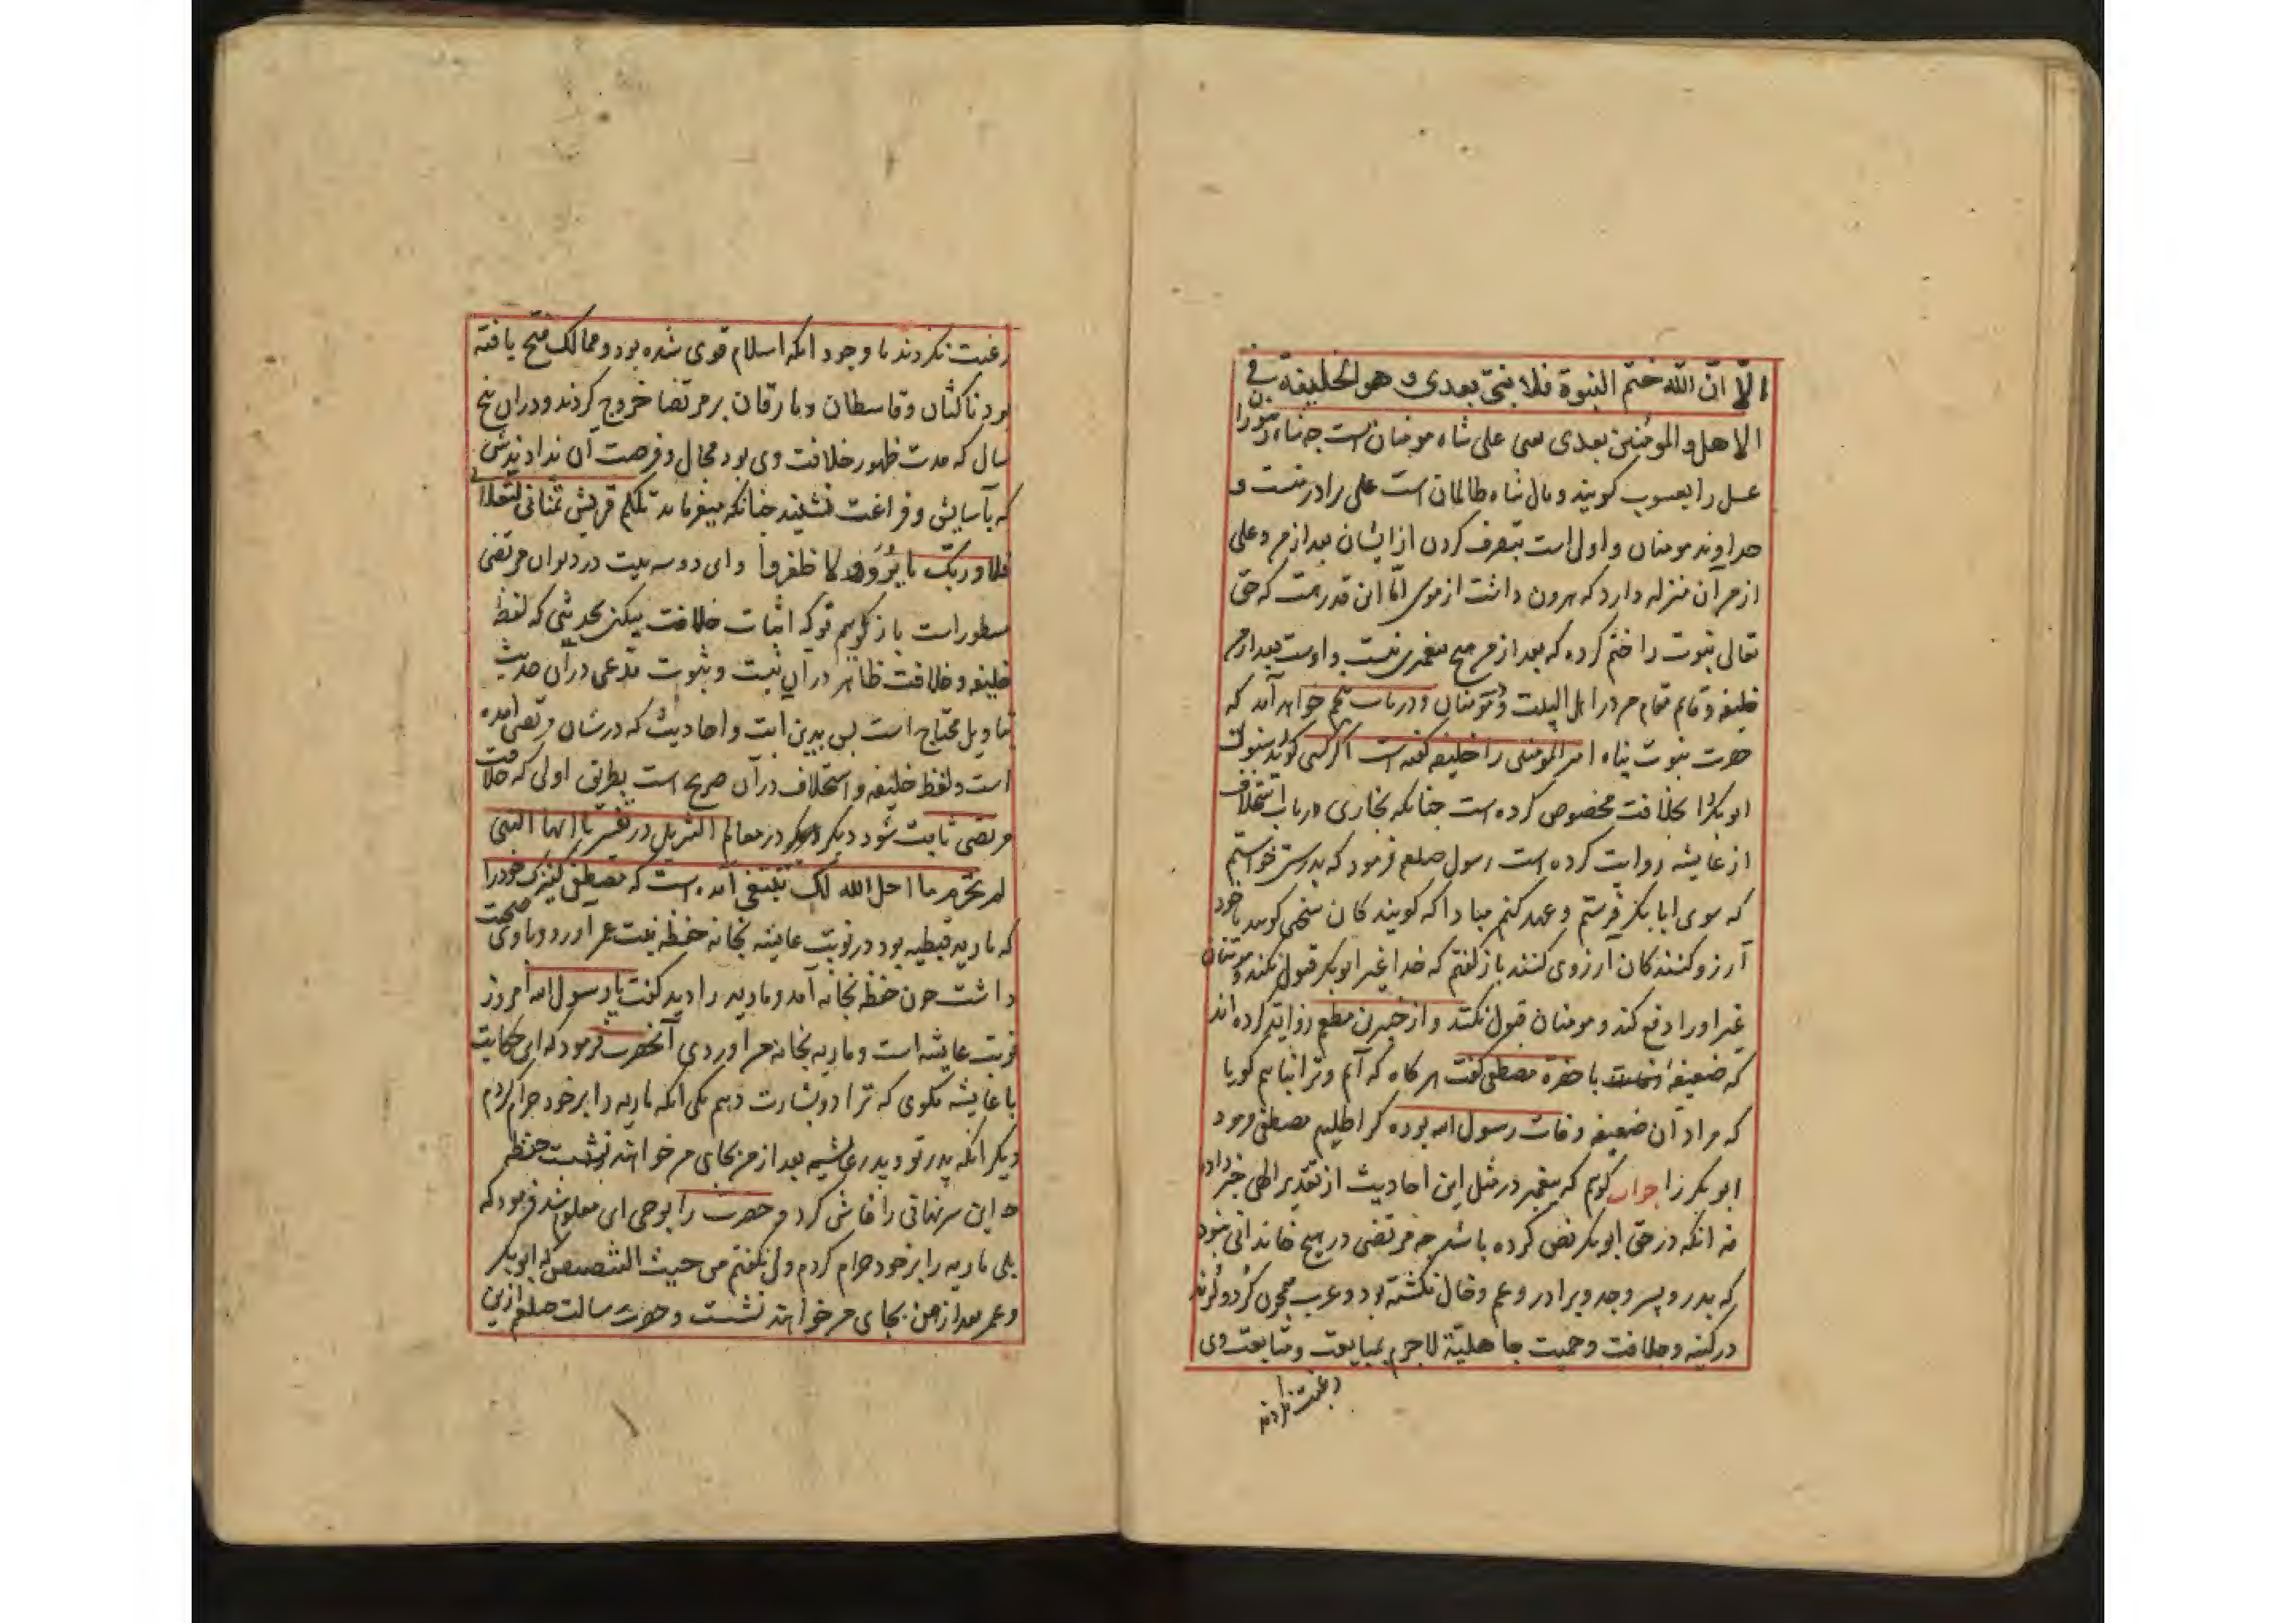 الّا انّ الله ختم النبوة فلا نبیّ بعدی و هو الخلیفة فی
الاهل و المؤمنین بعدی یعنی علی شاه مومنان است چه شاه زنبور
عسل را یعسوب کویند و مال شاه ظالمان است علی برادر منست و
خداوند مومنان و اولی است بتصرف کردن از ایشان بعد از من و علی
از من آن منزله دارد که هرون داشت از موسی امّا این قدر هست که حق
تعالی نبوت را ختم کرده که بعد از من هیچ پیغمبری نیست و اوست بعد از من
خلیفه و قایم مقام من در اهل البیت و مومنان و در باب خواهد آمد که
حضرت نبوت پناه امیر المومنین را خلیفه کفته است اکر کسی کوید رسول
ابوبکر را بخلافت مخصوص کرده است چنانکه بخاری در باب استخلاف
از عایشه روایت کرده است رسول صلعم فرمود که بدرستی خواستم
که سوی ابابکر فرستم و عهد کنم مبادا که کویند کان سخنی کویند یا خود
آرزو کنندکان آرزوی کنند باز کفتم که خدا غیر ابوبکر قبول نکند و مومنان
غیر او را دفع کند و مومنان قبول نکنند و از جبیر بن مطعم روایت کرده اند
که ضعیفهٔ با حضرة مصطفی کفت هر کاه که آیم و ترا نیابم کویا
که مراد آن ضعیفه وفات رسول الله بوده کرا طلبم مصطفی فرمود
ابوبکر را جواب کویم که پیغمبر در مثل این احادیث از تقدیر الهی خبر داده
نه انکه در حق ابوبکر نص کرده باشد چه مرتضی در هیچ خاندانی نبود
که پدر و پسر و جد و برادر و عم و خال نکشته بود و عرب
در کینه و خلافت و حمیت جاهلیّة لاجرم بمبایعت و متابعت وی
رغبت نکردند
رغبت نکردند با وجود انکه اسلام قوی شده بود و ممالک فتح یافته
بود ناکثان و قاسطان و مارقان بر مرتضا خروج کردند و در ان پنج
سال که مدت ظهور خلافت وی بود مجال و فرصت آن ندادندش
که بآسایش و فراغت نشیند چنانکه میفرماید تلکم قریش تمنانی لتقتلنی
فلا و ربک ما برّوا و لا ظفروا و این دو سه بیت در دیوان مرتضی
مسطور است باز کویم تو که اثبات خلافت میکنی بحدیثی که لفظ
خلیفه و خلافت ظاهر در آن نیست و ثبوت مدّعی در آن حدیث
بتاویل محتاج است پس بدین ایت و احادیث که در شان مرتضی آمده
است و لفظ خلیفه و استخلاف در آن صریح است بطریق اولی که خلافت
مرتضی ثابت شود دیکر در معالم التنزیل در تفسیر یا ایها النبی
لم تحرّم ما احل الله لک تبتغی آمده است که مصطفی کنیزک خود را
که ماریه قبطیه بود در نوبت عایشه بخانه حفظه بنت عمر آورد و با وی صحبت
داشت چون حفظه بخانه آمد و ماریه را دید کفت یا رسول الله امروز
نوبت عایشه است و ماریه بخانه من اوردی آنحضرت فرمود که این حکایت
با عایشه مکوی که ترا دو بشارت دهم یکی انکه ماریه را بر خود حرام کردم
دیکر انکه پدر تو و پدر عایشه بعد از من بجای من خواهند نشست حفظه
این سر نهانی را فاش کرد و حضرت را بوحی این معلوم شد فرمود که
بلی ماریه را بر خود حرام کردم ولی نکفتم من حیث التنصیص که ابوبکر
و عمر بعد از من بجای من خواهند نشست و حضرت رسالت صلعم ازین